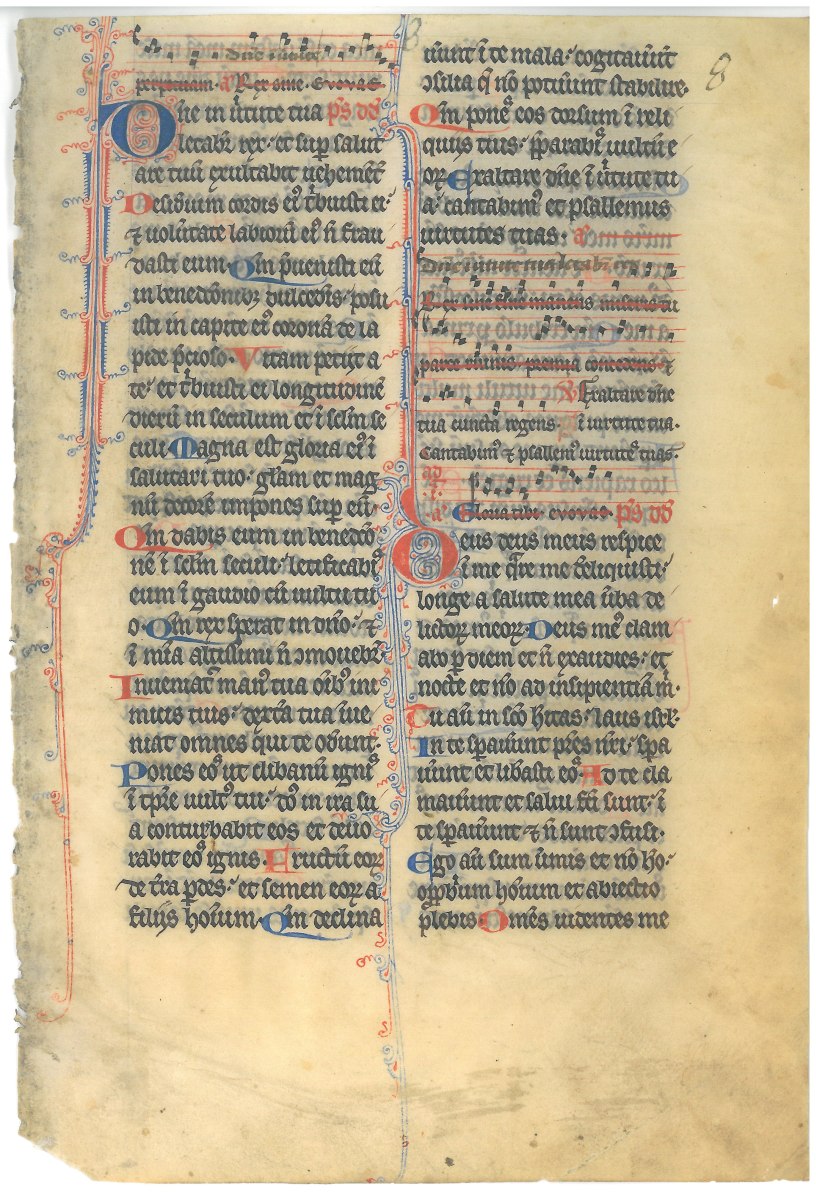 8
8
perpetuum. a Rex sine. Evovae
Dñe in v̾tute tua ps dd
letabr̃ rex ⁊ et sup salut
are tuũ exultabit vehemẽt̃
Desiderium cordis eiꝰ tͥbuisti ei ⁊
⁊ volũtate labiorũ eiꝰ ñ frau
dasti eum. Qm̃ p̃venisti eũ
in benedc̃onibꝫ dulcedĩs ⁊ posu
isti in capite eiꝰ coronã de la
pide p̃cioso. Vitam petijt a
te ⁊ et tͥbuisti ei longitudinẽ
dierũ in seculum et ĩ sclm̃ se
culi. Magna est gloria eiꝰ ĩ
salutari tuo ⁊ glãm et mag
nũ decorẽ impones sup eũ.
Qm̃ dabis eum in benedcõ
nẽ ĩ sclm̃ seculi ⁊ letificabiˢ
eum ĩ gaudio cũ vultu tu
o. Qm̃ rex sperat in dño ⁊ ⁊
ĩ mĩa altissimi ñ ꝯmovebr̃.
Inveniat̃ manꝰ tua oĩbꝰ ini
micis tuis ⁊ dext̃a tua ĩve
niat omnes qui te oderunt.
Pones eoˢ ut clibanũ igniˢ
ĩ tp̃re vultꝰ tui ⁊ dñˢ in ira su
a conturbabit eos et devo
rabit eoˢ ignis. Fructũ eoꝝ
de tr̃a ꝑdes ⁊ et semen eoꝝ a
filijs hoĩum. Qm̃ declina
verunt ĩ te mala ⁊ cogitaverunt
ꝯsilia q̃ nõ potuerunt stabilire.
Qm̃ poneˢ eos dorsum ĩ reli
quijs tuis ⁊ p̃parabiˢ vultũ e
oꝝ. Exaltare dñe ĩ v̾tute tu
a ⁊ cantabimꝰ et psallemus
virtutes tuas ⁊ a
Rex sine
V Exaltare dñe
tua cuncta regens. ĩ virtute tua.
Cantabimꝰ ⁊ psallemꝰ virtuteˢ tuas.
Gloria tibi. evovae. ps dd
Deus deus meus respice
ĩ me q̃re me dẽliquisti ⁊
longe a salute mea v̾ba de
lictoꝝ meoꝝ. Deus meˢ clam
abo ꝑ diem et ñ exaudies ⁊ et
nocte et nõ ad insipientiã m̃.
Tu aũ in scõ hĩtas ⁊ laus isrl̃.
In te sp̃averunt pr̃es nr̃i ⁊ spa
verunt et libasti eoˢ. Ad te cla
maverunt et salvi fc̃i sunt ⁊ ĩ
te sp̃averunt ⁊ ñ sunt ꝯfusi.
Ego aũ sum v̾mis et nõ ho ⁊
opp̃b̾um hoĩum et abiectio
plebis. Omẽs videntes me